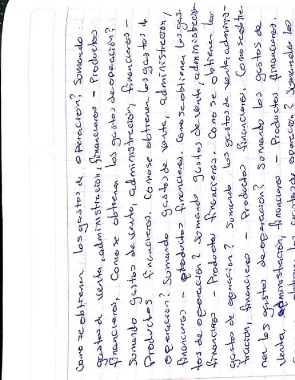 como se obtienen los gastos de operación? Sumando
gastos de venta, administración, financieros – Productos
financieros, Como se obtienen los gastos de operación?
Sumando gastos de venta, administración, financieros –
Productos financieros. Como se obtienen los gastos d
operación? Sumando gastos de venta, administración,
financieros – productos financieros, Como se obtienen los gas-
tos de operación? Sumando gastos de venta, administración
financieros – Productos financieros. Como se obtienen los
gastos de operación? Sumando los gastos de venta, adminis-
tración, financieros – Productos financieros, Como se obtie-
nen los gastos de operación? Sumando los gastos de
venta, administración, financieros – Productos financieros.
los gastos de operación? Sumando los